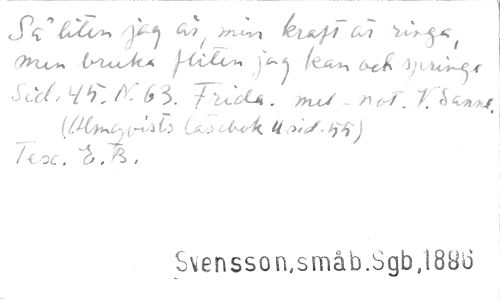 Så liten jag är, min kraft är ringa,
men bruka fliten jag kan och springa
Sid. 45. N. 63. Frida. mel-not. V. Sanne.
(Almqvists Läsebok II sid. 55)
Tex. E. B.
Svensson, småb. Sgb, 1886